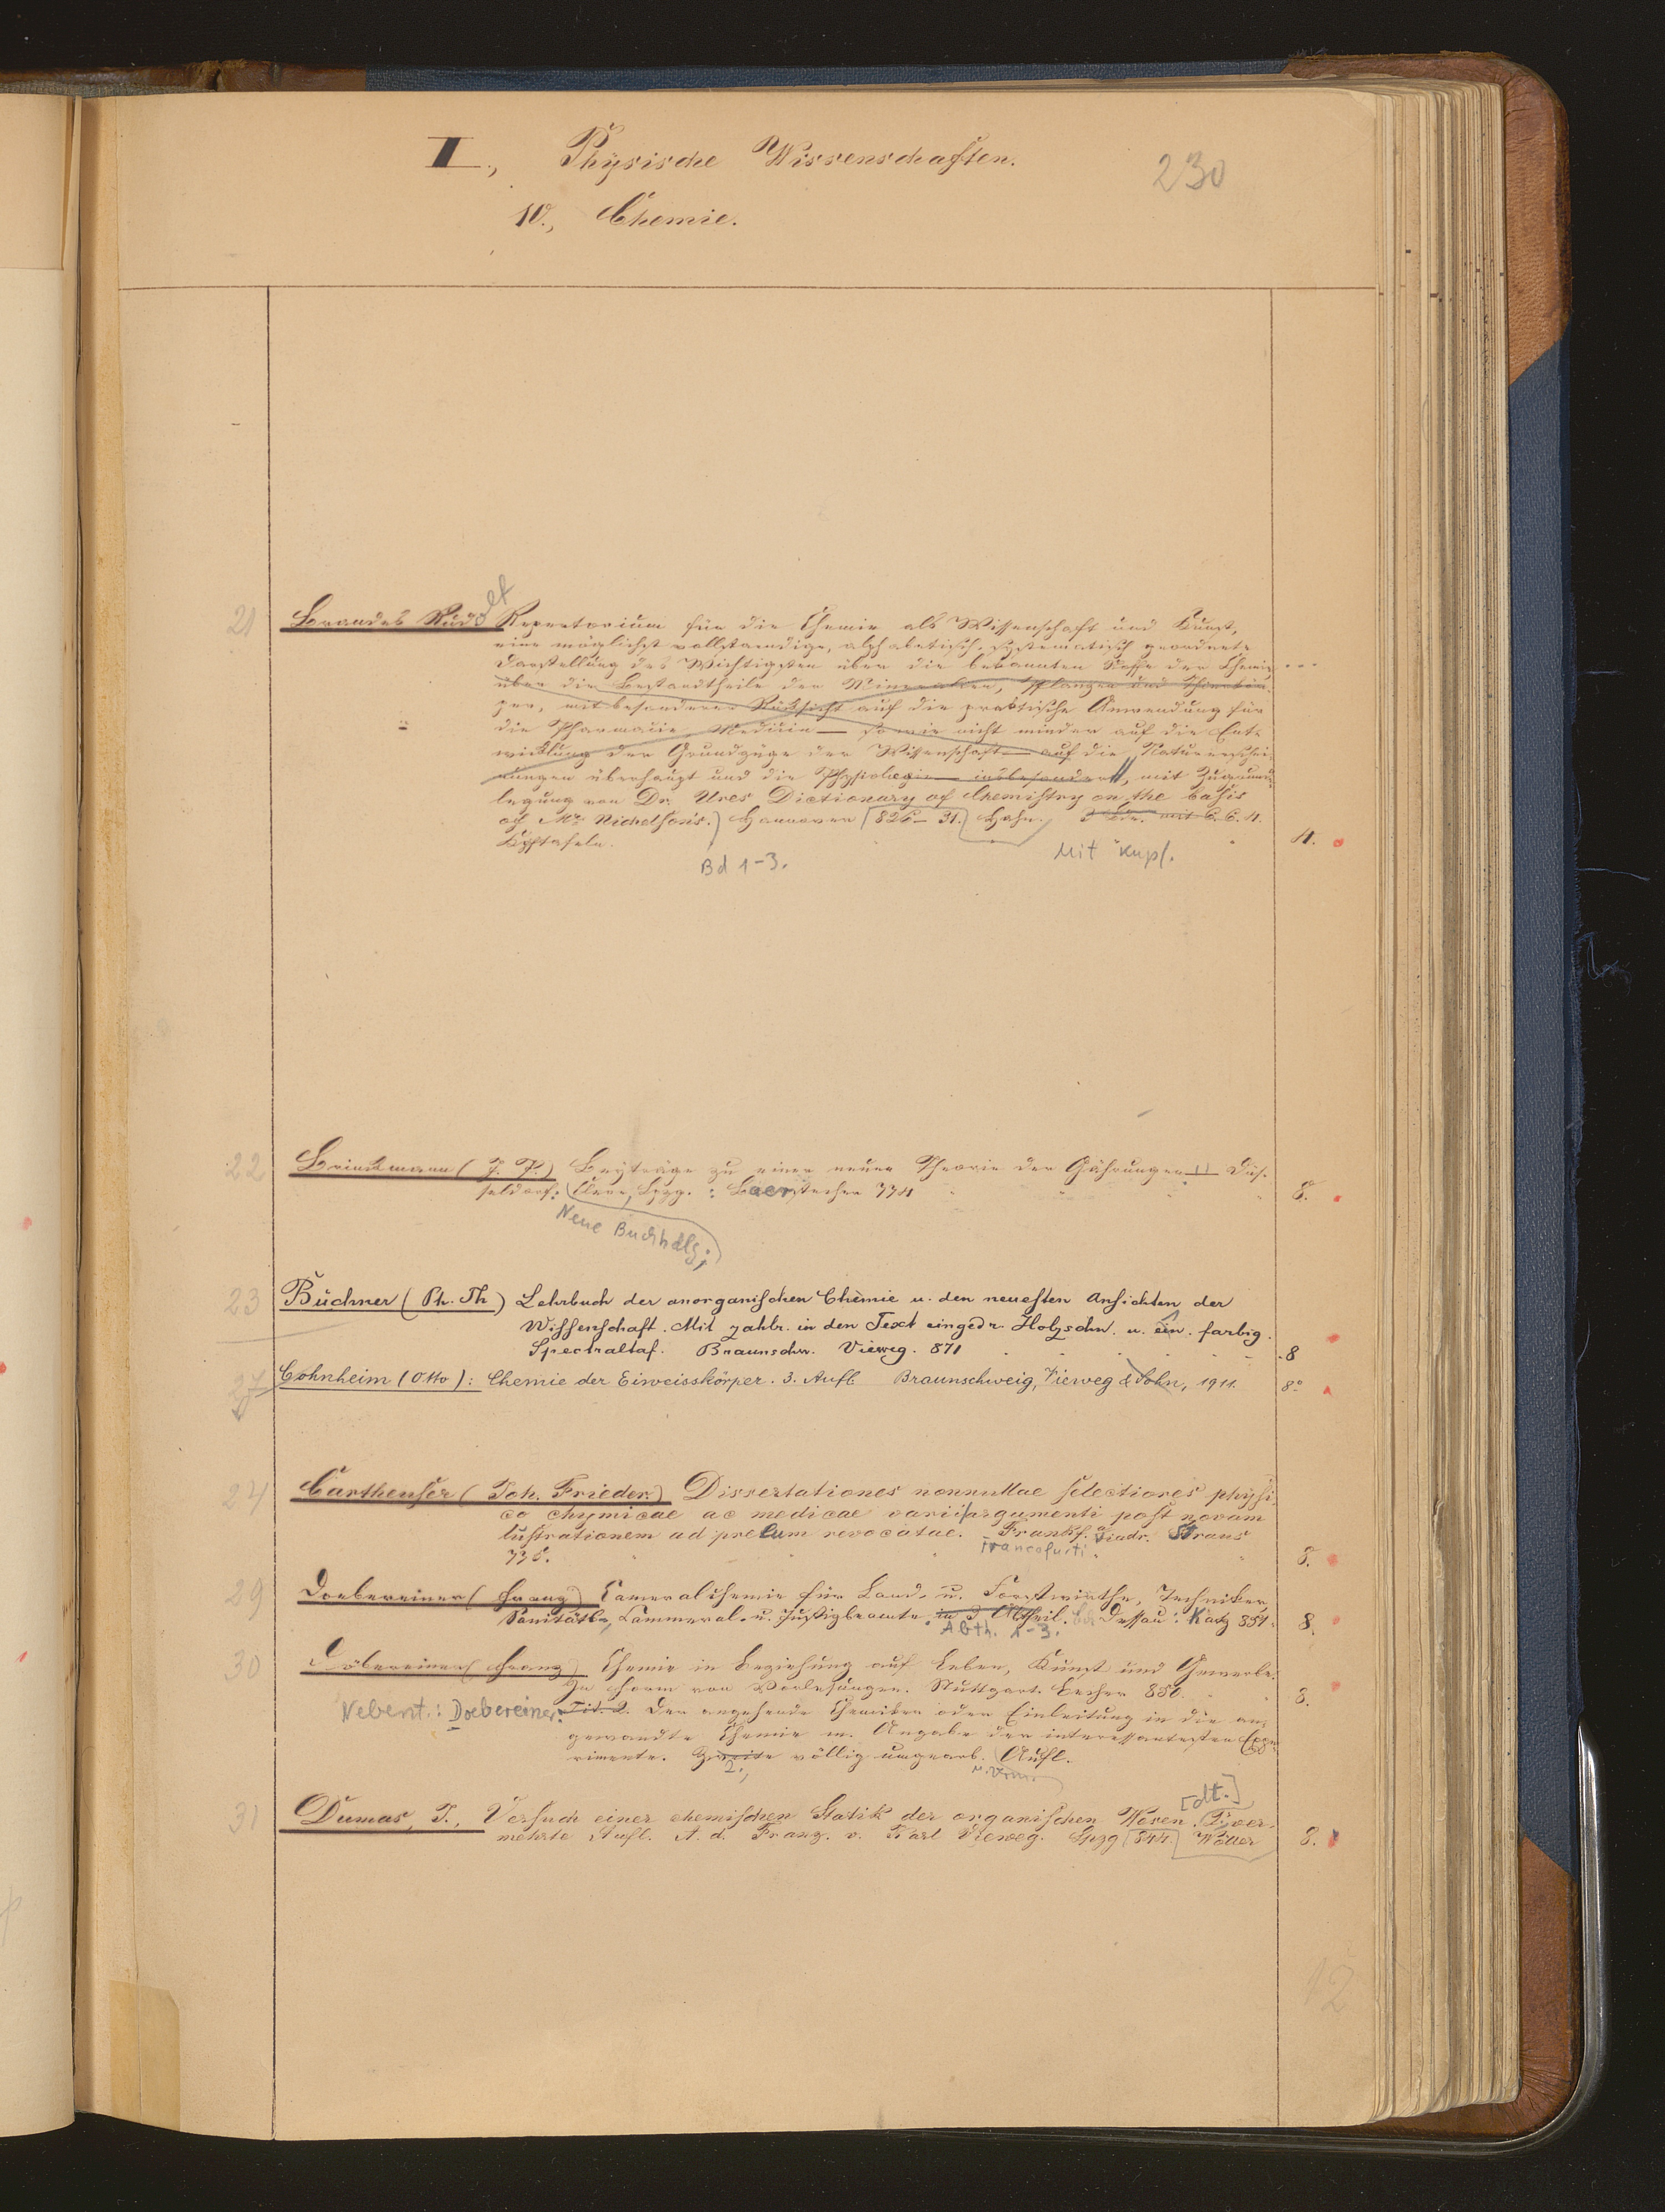 II., Physische Wissenschaften.
230
10., Chemie.
21 Brandes Rudolf Repertorium für die Chemie als Wissenschaft und Kunst,
eine möglichst vollstaendige, alphabetisch-systematisch geordnete
Darstellung des Wichtigsten über die bekannten Stoffe der Chemie,
über die Bestandtheile der Mineralien, Pflanzen und Thierkör-
per, mit besonderer Rücksicht auf die praktische Anwendung für
die Pharmacie, Medicin — so wie nicht minder auf die Ent-
wicklung der Grundzüge der Wissenschaft — auf die Naturerschei-
nungen überhaupt und die Physiologie — insbesondere, mit Zugrund-
legung von Dr. Ures Dictionary of Chemistry on the basis
of Mr. Nicholson's. Hannover 826–31. Hahn. mit 6. 6. 4.
Kpftafeln. 4.
Bd 1-3. Mit Kupf.
22 Brinckmann (J. P.) Beyträge zu einer neuen Theorie der Gährungen Düs-
seldorf: Cleve, Lpzg.: Baerstecher 774 8.
Neue Buchhdlg;
23 Büchner (Ph. Th) Lehrbuch der anorganischen Chemie u. den neuesten Ansichten der
Wissenschaft. Mit zahlr. in den Text eingedr. Holzschn. u. ein. farbig.
Spectraltaf. Braunschw. Vieweg. 871 8
27 Cohnheim (Otto): Chemie der Eiweisskörper. 3. Aufl Braunschweig, Vieweg & Sohn, 1911. 8°
24 Carthenser (Joh. Frieder.) Dissertationes nonnullae selectiores physi-
co chymicae ac medicae varii argumenti post novam
lustrationem ad prelum revocatae. Frankf. a Viadr. Straus
Francofurti.
775. 8.
29 Doebereiner (Franz) Cameralchemie für Land- u. Forstwirthe, Techniker,
Sanitäts-, Cammeral- u. Justizbeamte in 3 Abtheil. Dessau: Katz 851. 8.
Abth. 1-3.
30 Döbereiner (Franz) Chemie in Beziehung auf Leben, Kunst und Gewerbe.
In Form von Vorlesungen. Stuttgart. Becher 850. 8.
Nebent.: Doebereiner: Tit. 2. Der angehende Chemiker oder Einleitung in die an-
gewandte Chemie m. Angabe der interessantesten Expe-
rimente. Zweite völlig umgearb. Aufl.
2., u. verm.
[dt.]
31 Dumas, J., Versuch einer chemischen Statik der organischen Wesen. 2, ver-
mehrte Aufl. A. d. Franz. v. Karl Vieweg. Lpzg 844 Wöller 8.
12